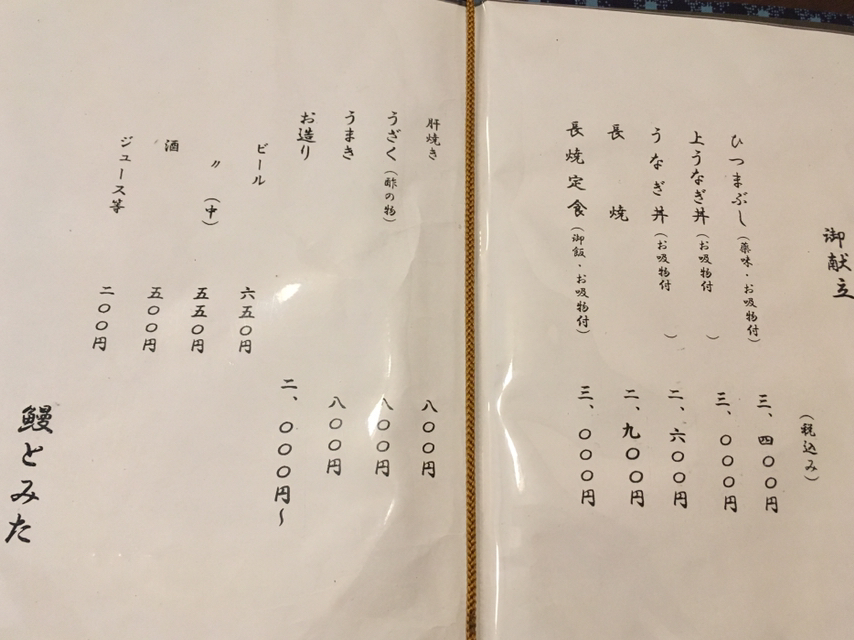 御献立
（税込み）
ひつまぶし（薬味・お吸物付） 三、四〇〇円
上うなぎ丼（お吸物付　） 三、〇〇〇円
うなぎ丼（お吸物付　） 二、六〇〇円
長　焼 二、九〇〇円
長焼定食（御飯・お吸物付） 三、〇〇〇円
肝焼き 八〇〇円
うざく（酢の物） 八〇〇円
うまき 八〇〇円
お造り 二、〇〇〇円〜
ビール 六五〇円
〃（中） 五五〇円
酒 五〇〇円
ジュース等 二〇〇円
鰻とみた